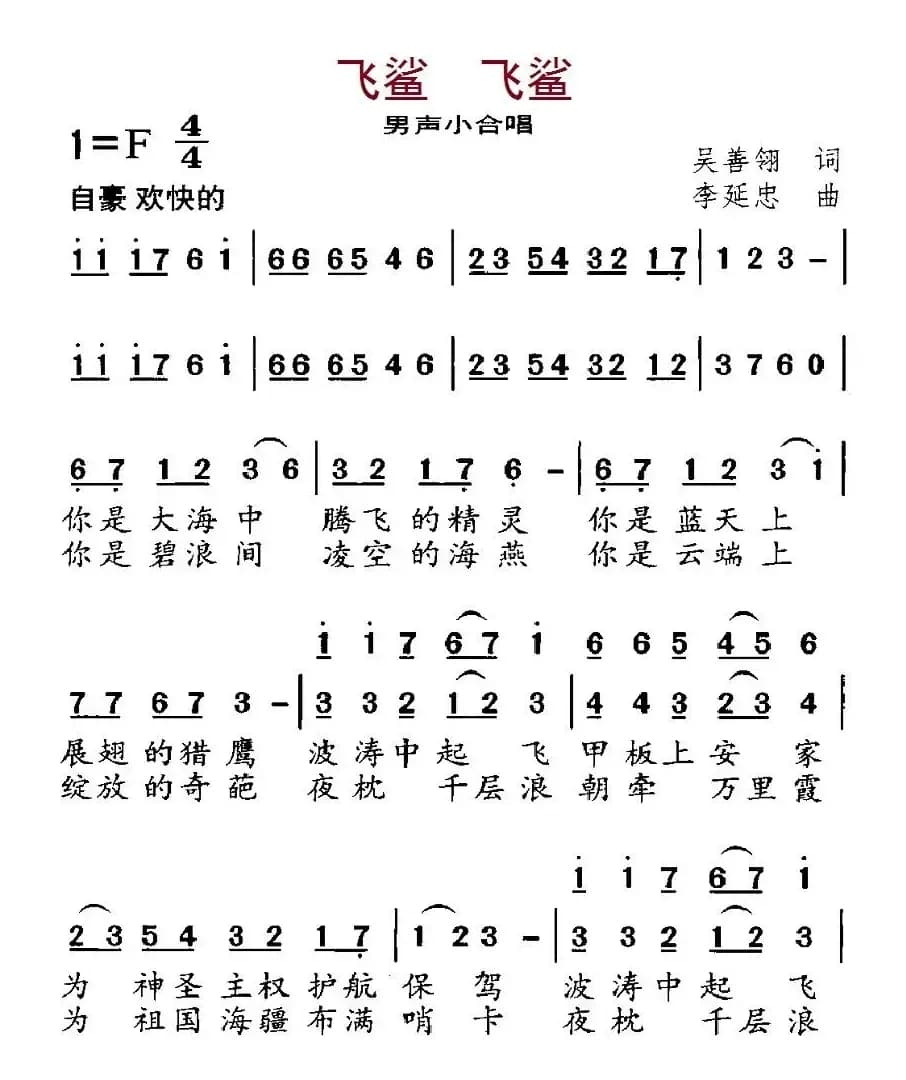 飞鲨 飞鲨
男声小合唱
1=F 4/4
吴善翎 词
自豪 欢快的
李延忠 曲
i i i 7 6 i | 6 6 6 5 4 6 | 2 3 5 4 3 2 1 7 | 1 2 3 – |
i i i 7 6 i | 6 6 6 5 4 6 | 2 3 5 4 3 2 1 2 | 3 7 6 0 |
6 7 1 2 3 6 | 3 2 1 7 6 – | 6 7 1 2 3 i |
你是大海中 腾飞的精灵 你是蓝天上
你是碧浪间 凌空的海燕 你是云端上
i i 7 6 7 i 6 6 5 4 5 6
7 7 6 7 3 – | 3 3 2 1 2 3 | 4 4 3 2 3 4 |
展翅的猎鹰 波涛中起飞 甲板上安家
绽放的奇葩 夜枕千层浪 朝牵万里霞
i i 7 6 7 i
2 3 5 4 3 2 1 7 | 1 2 3 – | 3 3 2 1 2 3 |
为神圣主权护航保驾 波涛中起飞
为祖国海疆布满哨卡 夜枕千层浪